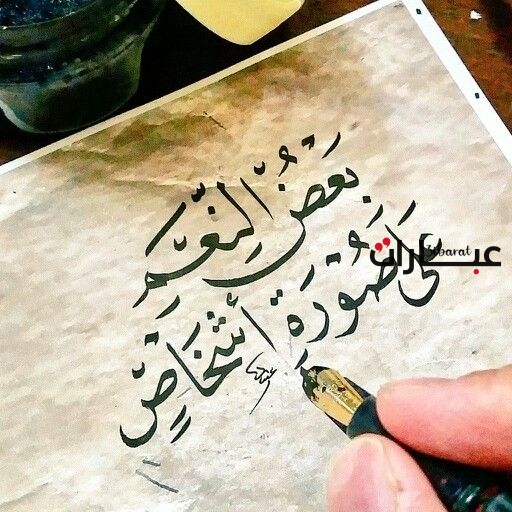 بَعْضُ النِّعَمِ
عَلَى صُورَةِ أَشْخَاصٍ
عبارات
3ibarat